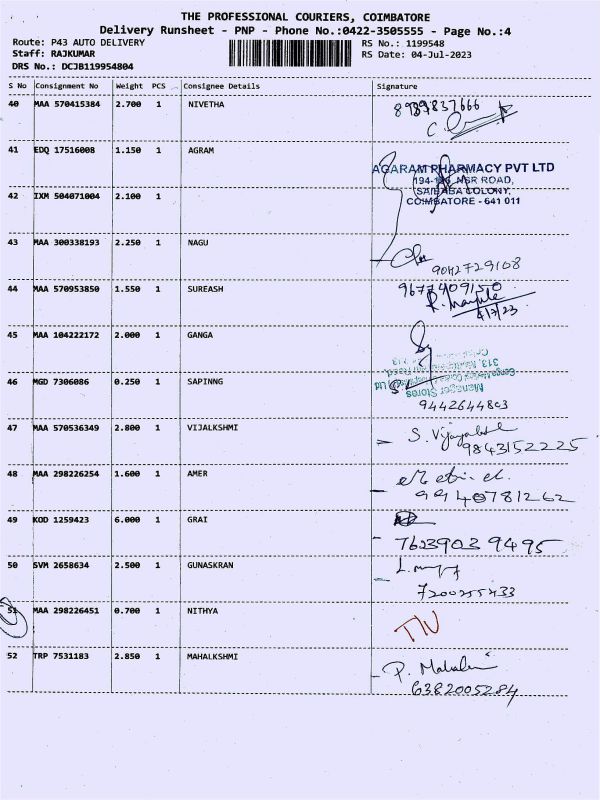 THE PROFESSIONAL COURIERS, COIMBATORE
Delivery Runsheet - PNP - Phone No.:0422-3505555 - Page No.:4
Route: P43 AUTO DELIVERY RS No.: 1199548
Staff: RAJKUMAR RS Date: 04-Jul-2023
DRS No.: DCJB119954804
S No Consignment No Weight PCS Consignee Details Signature
40 MAA 570415384 2.700 1 NIVETHA
41 EDQ 17516008 1.150 1 AGRAM
AGARAM PHARMACY PVT LTD
NSR ROAD,
SAIBABA COLONY,
COIMBATORE - 641 011
42 IXM 504071004 2.100 1
43 MAA 300338193 2.250 1 NAGU
9042729108
44 MAA 570953850 1.550 1 SUREASH
9677409150
4/7/23
45 MAA 104222172 2.000 1 GANGA
46 MGD 7306086 0.250 1 SAPINNG
Manager Stores
9442644803
47 MAA 570536349 2.800 1 VIJALKSHMI
9843152225
48 MAA 298226254 1.600 1 AMER
9940781262
49 KOD 1259423 6.000 1 GRAI
7623903 9495
50 SVM 2658634 2.500 1 GUNASKRAN
51 MAA 298226451 0.700 1 NITHYA
52 TRP 7531183 2.850 1 MAHALKSHMI
6382005284